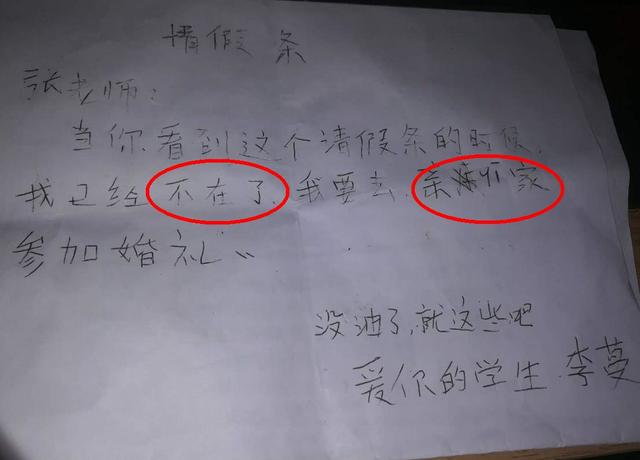 情假条
张老师:
当你看到这个请假条的时候,
我已经不在了,我要去,亲 家
参加婚礼
没油了,就这些吧
爱你的学生.李蔓